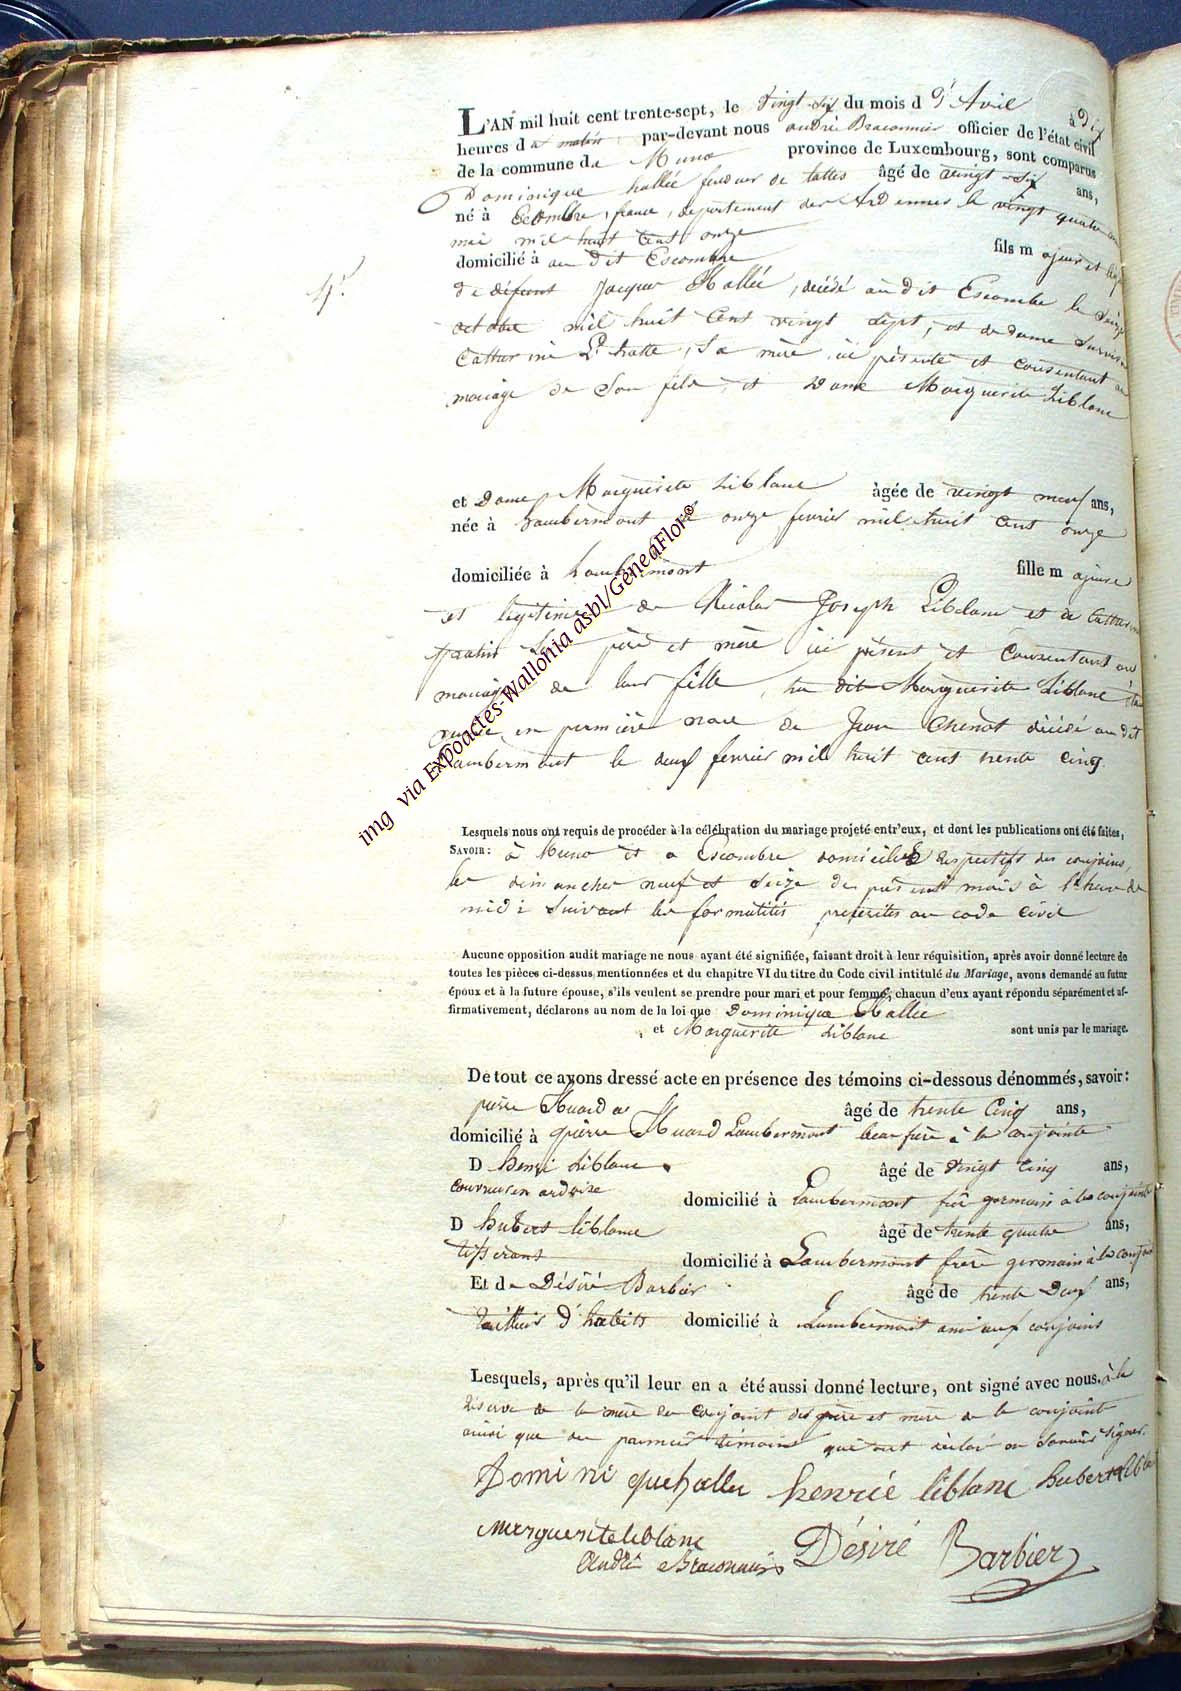 L'AN mil huit cent trente-sept, le Vingt-six du mois d'Avil à Dix
heures du matin par-devant nous andré Braconnier officier de l'état civil
de la commune de Muno province de Luxembourg, sont comparus
Dominique hallée de lattes âgé de vingt-six ans,
né à Escombre, france, departement des Ardennes le vingt quatre
mai mil huit cent onze
domicilié à au dit Escombre fils majeur et
4e
de défunt Jacque Hallée, décédé au dit Escombre le Seize
octobre mil huit Cent vingt Sept, et de dame
Catturine L'hotte, Sa mère ici présente et consentant au
mariage de Son fils, et Dame Marguerite Liblanc
et Dame Marguerite Liblanc âgée de vingt neuf ans,
née à Lambermont le onze fevrier mil huit cent onze
domiciliée à Lambermont fille majeure
et légitime de Nicolas Joseph Liblanc et de
Ses père et mère ici présent et Consentant au
mariage de leur fille, la dite Marguerite Liblanc
veuve en permière noce de Jean Chenot décédé au dit
Lambermont le deux fevrier mil huit cent trente cinq.
Lesquels nous ont requis de procéder à la célébration du mariage projeté entr'eux, et dont les publications ont été faites,
SAVOIR: à Muno et a Escombre domiciles respectifs des conjoins,
les dimanches neuf et Seize du présent mois à l'heure de
midi Suivant les formalités prescrites au code Civil
Aucune opposition audit mariage ne nous ayant été signifiée, faisant droit à leur réquisition, après avoir donné lecture de
toutes les pièces ci-dessus mentionnées et du chapitre VI du titre du Code civil intitulé du Mariage, avons demandé au futur
époux et à la future épouse, s'ils veulent se prendre pour mari et pour femme; chacun d'eux ayant répondu séparément et af-
firmativement, déclarons au nom de la loi que Dominique Hallée
et Marguerite Liblanc sont unis par le mariage.
De tout ce avons dressé acte en présence des témoins ci-dessous dénommés, savoir:
pierre Huard âgé de trente Cinq ans,
domicilié à pierre Huard Lambermont beau frère à la conjointe
D henri Liblanc âgé de Vingt Cinq ans,
couvreur en ardoise domicilié à Lambermont frère germain à la conjointe
D hubert liblanc âgé de trente quatre ans,
tisserans domicilié à Lambermont frère germain à la
Et de Désiré Barbier âgé de trente Deux ans,
tailleur d'habits domicilié à Lambermont ami aux conjoins
Lesquels, après qu'il leur en a été aussi donné lecture, ont signé avec nous. à la
réserve de la mère du conjoint des père et mère de la conjointe
ainsi que du premier témoins qui ont déclaré ne Savoir Signer.
Domini que hallee henrié liblanc hubert
Marguerite leblanc
André Braconnier Désiré Barbier
img via Expoactes-Wallonia asbl/GeneaFlor©